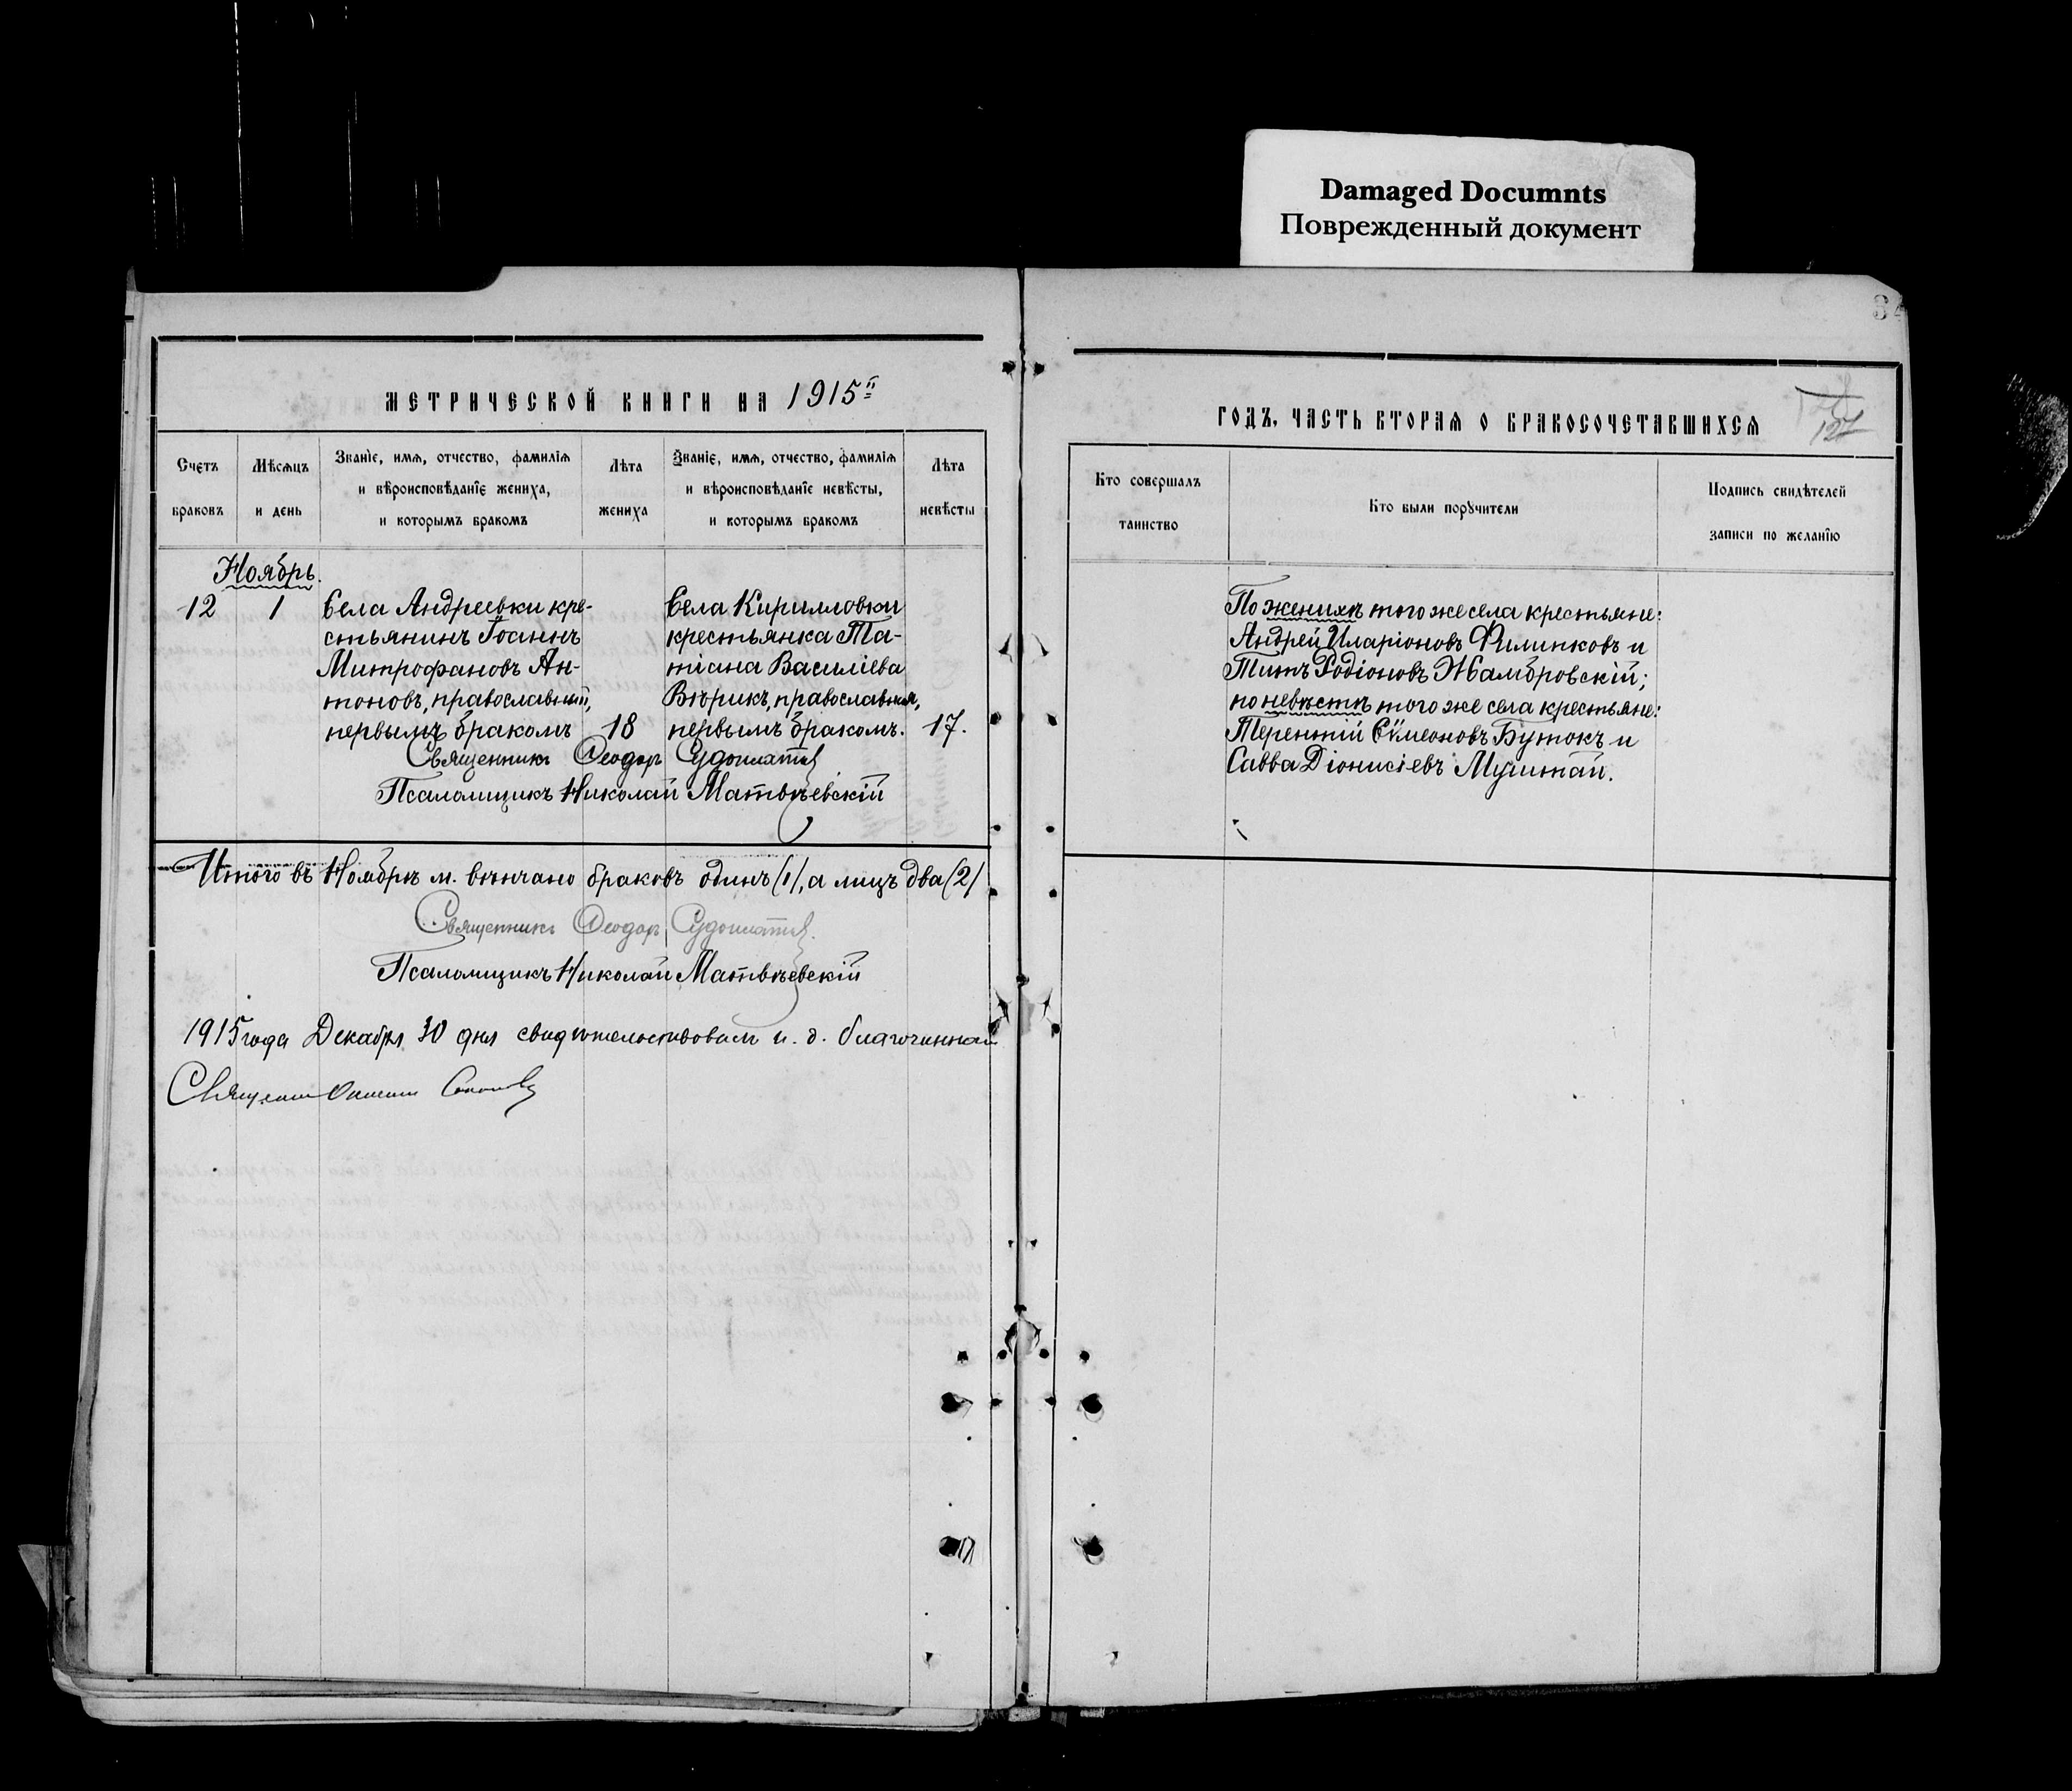 Damaged Documnts
Поврежденный документ
МЕТРИЧЕСКОЙ КНИГИ НА 1915й
Счетъ браковъ
Мѣсяцъ и день
Званіе, имя, отчество, фамилія и вѣроисповѣданіе жениха, и которымъ бракомъ
Лѣта жениха
Званіе, имя, отчество, фамилія и вѣроисповѣданіе невѣсты, и которымъ бракомъ
Лѣта невѣсты
Ноябрь.
12
1
Села Андреевки кре-
стьянинъ Іоаннъ
Митрофановъ Ан-
тоновъ, православный,
первымъ бракомъ
18
Села Кирилловки
крестьянка Та-
тіана Василіева
Вѣрикъ, православная,
первымъ бракомъ.
17.
Священникъ Ѳеодоръ
Псаломщикъ Николай Матвѣевскій
Итого въ Ноябрѣ м. вѣнчано браковъ одинъ (1), а лицъ два (2)
Священникъ Ѳеодоръ
Псаломщикъ Николай Матвѣевскій
1915 года Декабря 30 дня свидѣтельствовалъ и. д. благочиннаго
Священникъ
ГОДЪ, ЧАСТЬ ВТОРАЯ О БРАКОСОЧЕТАВШИХСЯ
127
Кто совершалъ таинство
Кто были поручители
Подпись свидѣтелей записи по желанію
По женихѣ того же села крестьяне:
Андрей Иларіоновъ Филипковъ и
Титъ Родіоновъ Жамбровскій;
по невѣстѣ того же села крестьяне:
Терентій Сѵмеоновъ Бутокъ и
Савва Діонисіевъ Муштай.